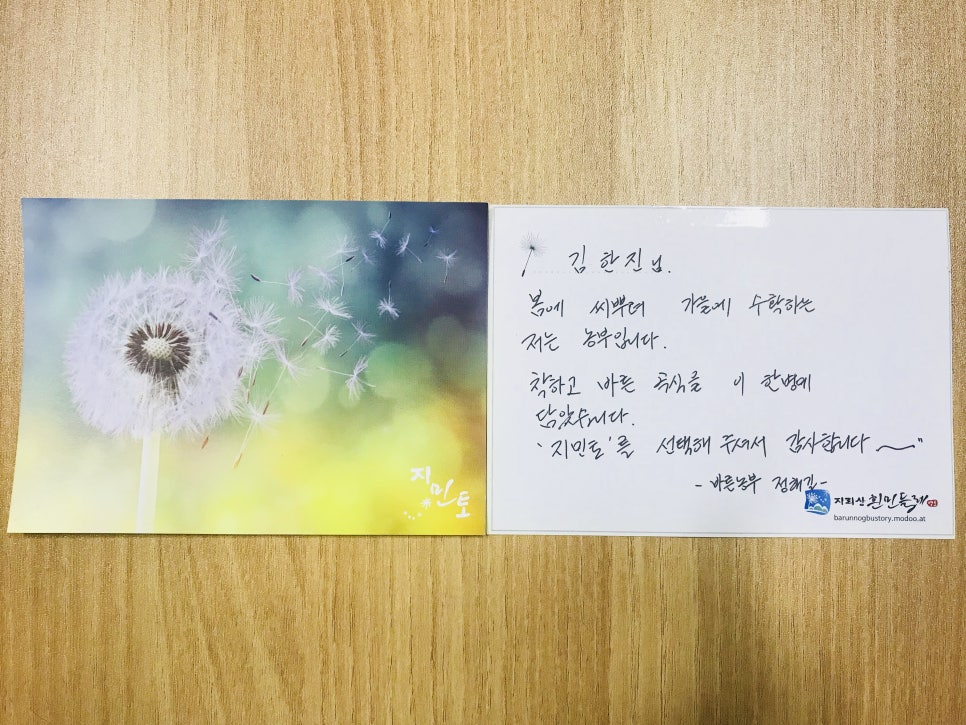 지민토
김한진님.
봄에 씨뿌려 가을에 수확하는
저는 농부입니다.
착하고 바른 음식을 이 한병에
담았습니다.
'지민토'를 선택해 주셔서 감사합니다~"
- 바른농부 정해길 -
지리산 흰민들레
barunnogbustory.modoo.at